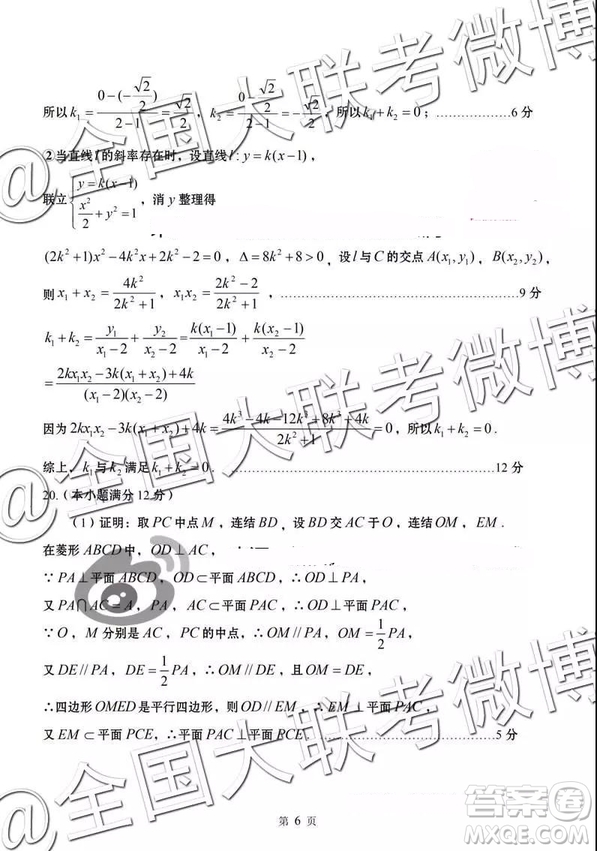 所以 k₁ = (0-(-√2/2))/(2-1) = √2/2, k₂ = (0-√2/2)/(2-1) = -√2/2, 所以 k₁+k₂=0; ………………6 分
2 当直线 l 的斜率存在时，设直线 l: y=k(x-1)，
联立 { y=k(x-1)
x²/2+y²=1 ，消 y 整理得
(2k²+1)x²-4k²x+2k²-2=0，Δ=8k²+8>0，设 l 与 C 的交点 A(x₁,y₁)，B(x₂,y₂)，
则 x₁+x₂=4k²/(2k²+1)，x₁x₂=(2k²-2)/(2k²+1)，………………9 分
k₁+k₂=y₁/(x₁-2)+y₂/(x₂-2)=k(x₁-1)/(x₁-2)+k(x₂-1)/(x₂-2)
=(2kx₁x₂-3k(x₁+x₂)+4k)/((x₁-2)(x₂-2))
因为 2kx₁x₂-3k(x₁+x₂)+4k=(4k³-4k-12k³+8k³+4k)/(2k²+1)=0，所以 k₁+k₂=0．
综上，k₁ 与 k₂ 满足 k₁+k₂=0．………………12 分
20.（本小题满分 12 分）
（1）证明：取 PC 中点 M，连结 BD，设 BD 交 AC 于 O，连结 OM，EM．
在菱形 ABCD 中，OD⊥AC，
∵PA⊥平面 ABCD，OD⊂平面 ABCD，∴OD⊥PA，
又 PA∩AC=A，PA，AC⊂平面 PAC，∴OD⊥平面 PAC，
∵O，M 分别是 AC，PC 的中点，∴OM∥PA，OM=1/2PA，
又 DE∥PA，DE=1/2PA，∴OM∥DE，且 OM=DE，
∴四边形 OMED 是平行四边形，则 OD∥EM，∴EM⊥平面 PAC，
又 EM⊂平面 PCE，∴平面 PAC⊥平面 PCE．………………5 分
第 6 页
@全国大联考微博
@全国大联考微博
@全国大联考微博
答案卷
MXQE.COM